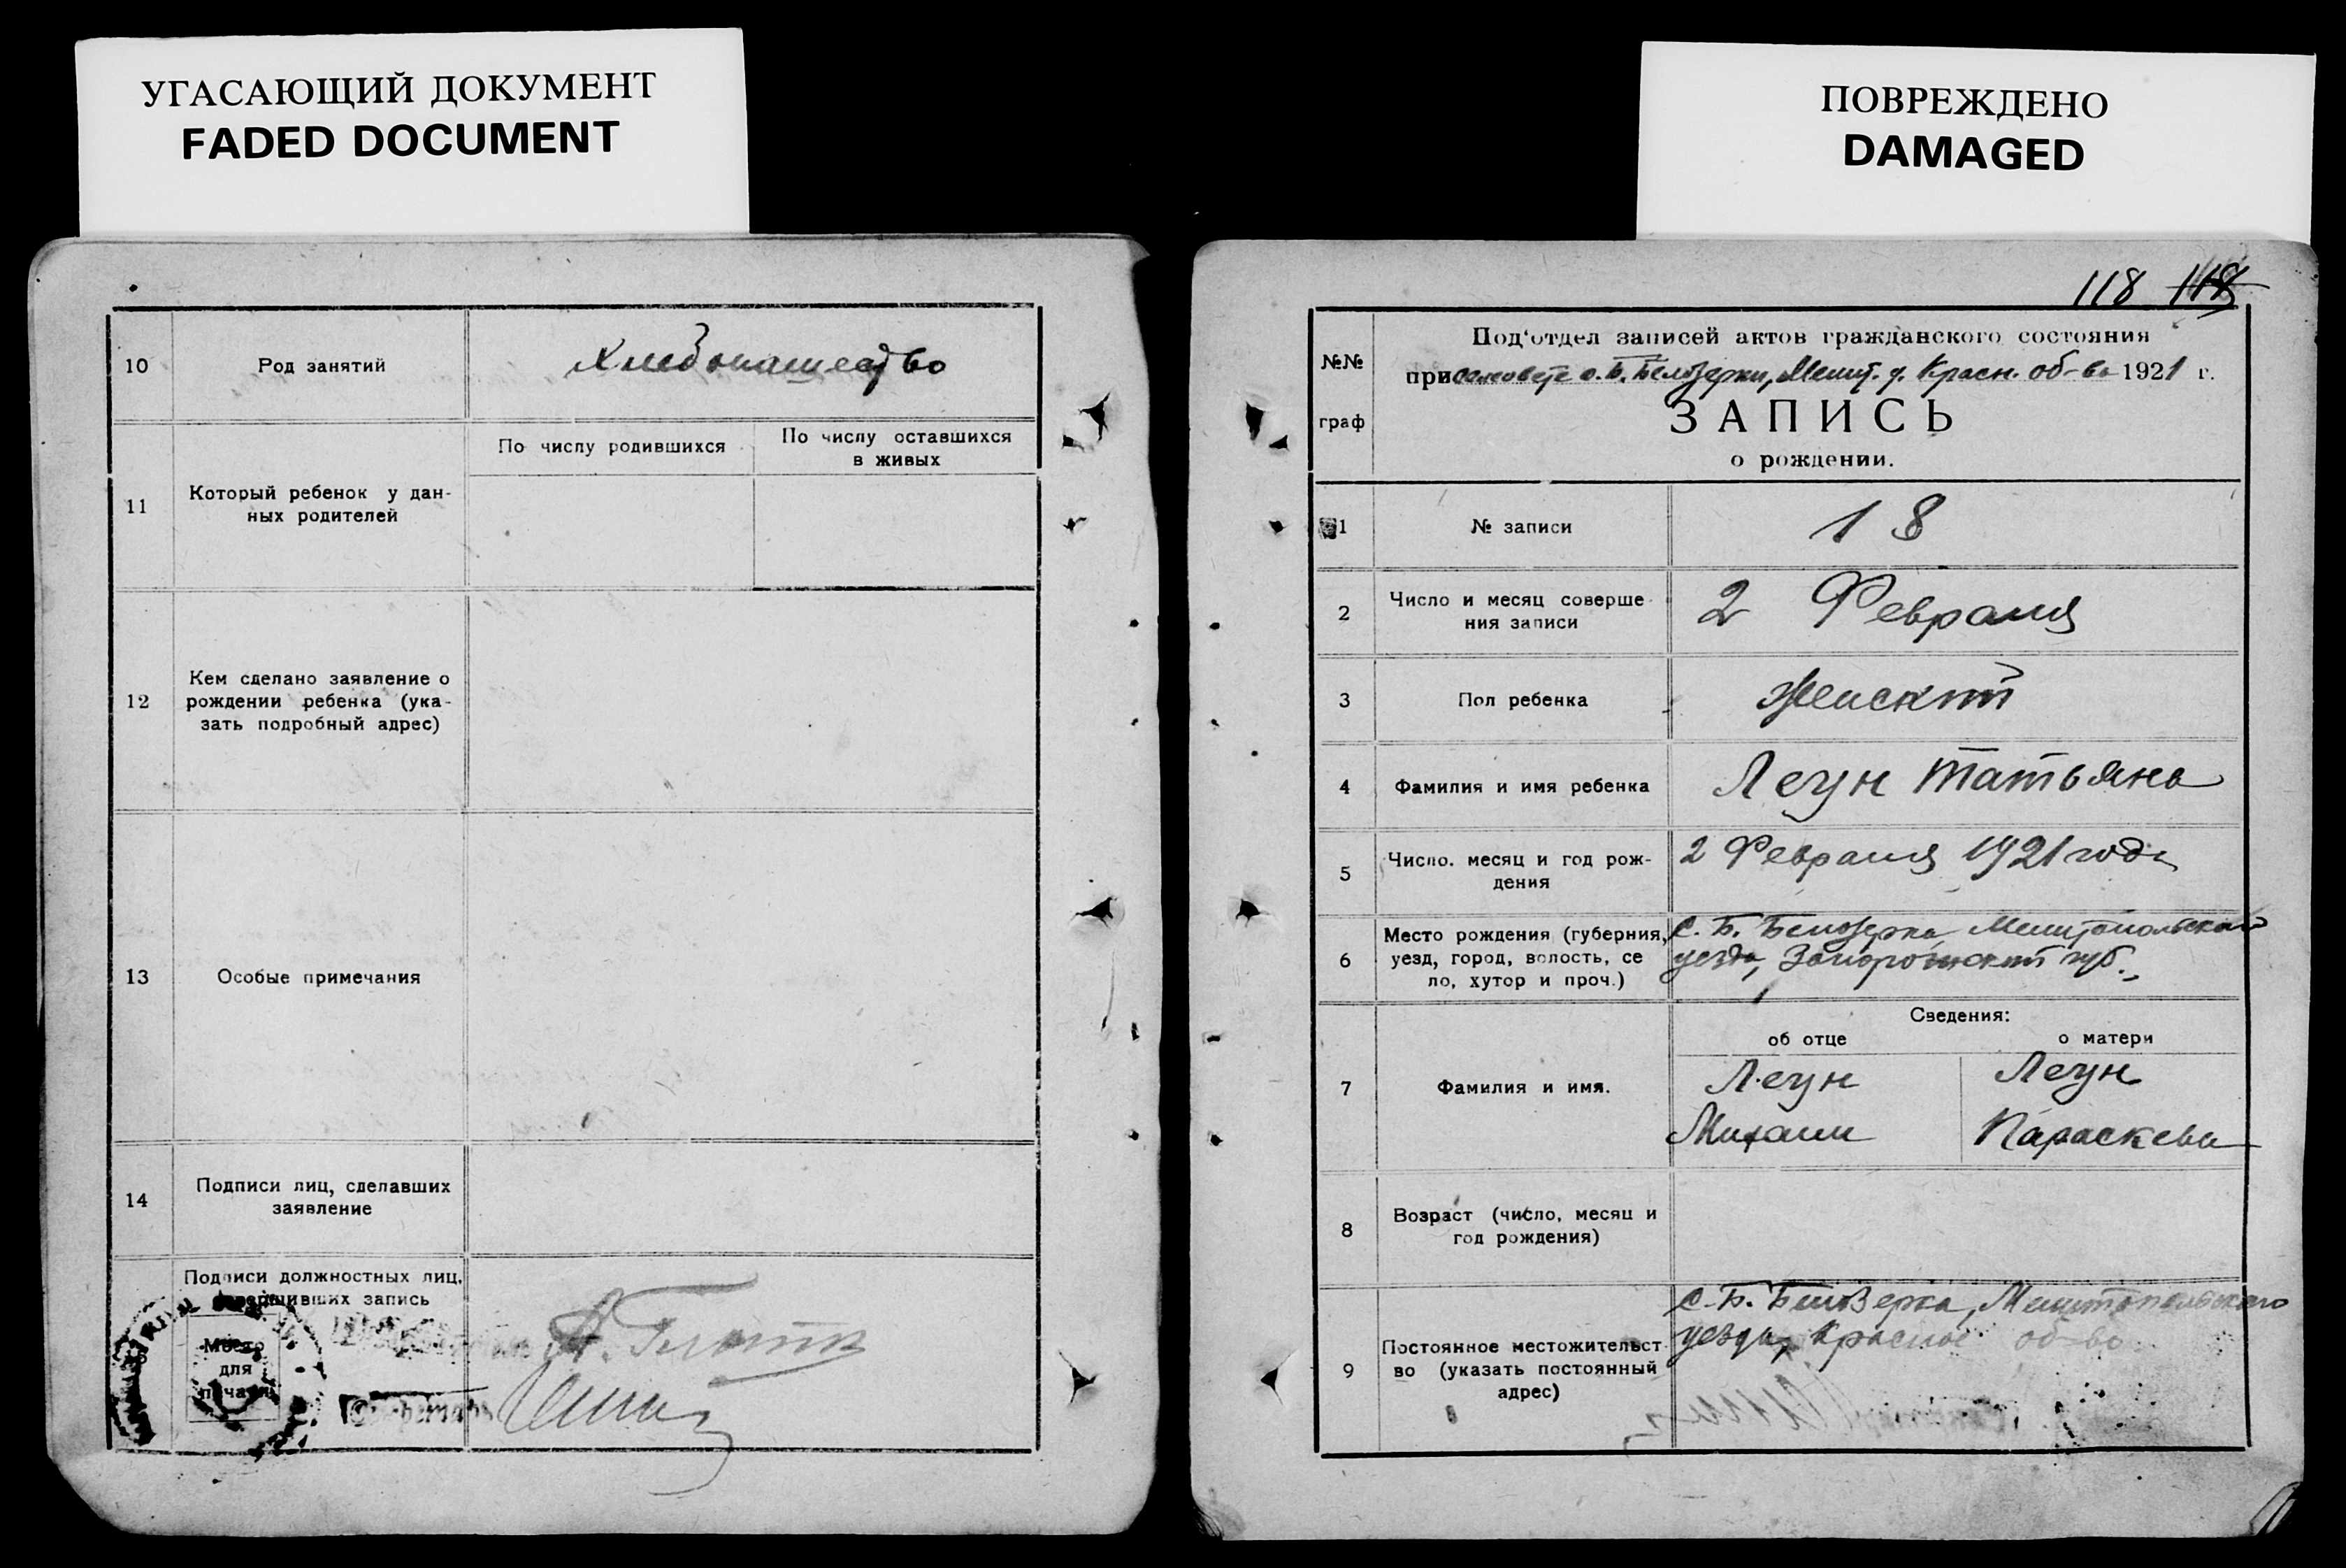 УГАСАЮЩИЙ ДОКУМЕНТ
FADED DOCUMENT
ПОВРЕЖДЕНО
DAMAGED
10
Род занятий
Хлебопашество
11
Который ребенок у дан-
ных родителей
По числу родившихся
По числу оставшихся
в живых
12
Кем сделано заявление о
рождении ребенка (ука-
зать подробный адрес)
13
Особые примечания
14
Подписи лиц, сделавших
заявление
Подписи должностных лиц,
совершивших запись
Место
для
печати
Секретарь
118 118
№№
граф
Под'отдел записей актов гражданского состояния
при с. Б. Белозерки, Мелит. у. Красн. об-ва 1921 г.
ЗАПИСЬ
о рождении.
1
№ записи
18
2
Число и месяц соверше-
ния записи
2 Февраля
3
Пол ребенка
Женский
4
Фамилия и имя ребенка
Леун Татьяна
5
Число. месяц и год рож-
дения
2 Февраля 1921 года
6
Место рождения (губерния,
уезд, город, волость, се
ло, хутор и проч.)
с. Б. Белозерка Мелитопольского
уезда, Запорожский губ.
Сведения:
об отце
о матери
7
Фамилия и имя.
Леун
Михаил
Леун
Параскева
8
Возраст (число, месяц и
год рождения)
9
Постоянное местожительст
во (указать постоянный
адрес)
с. Б. Белозерка, Мелитопольского
уезда, Красное об-во